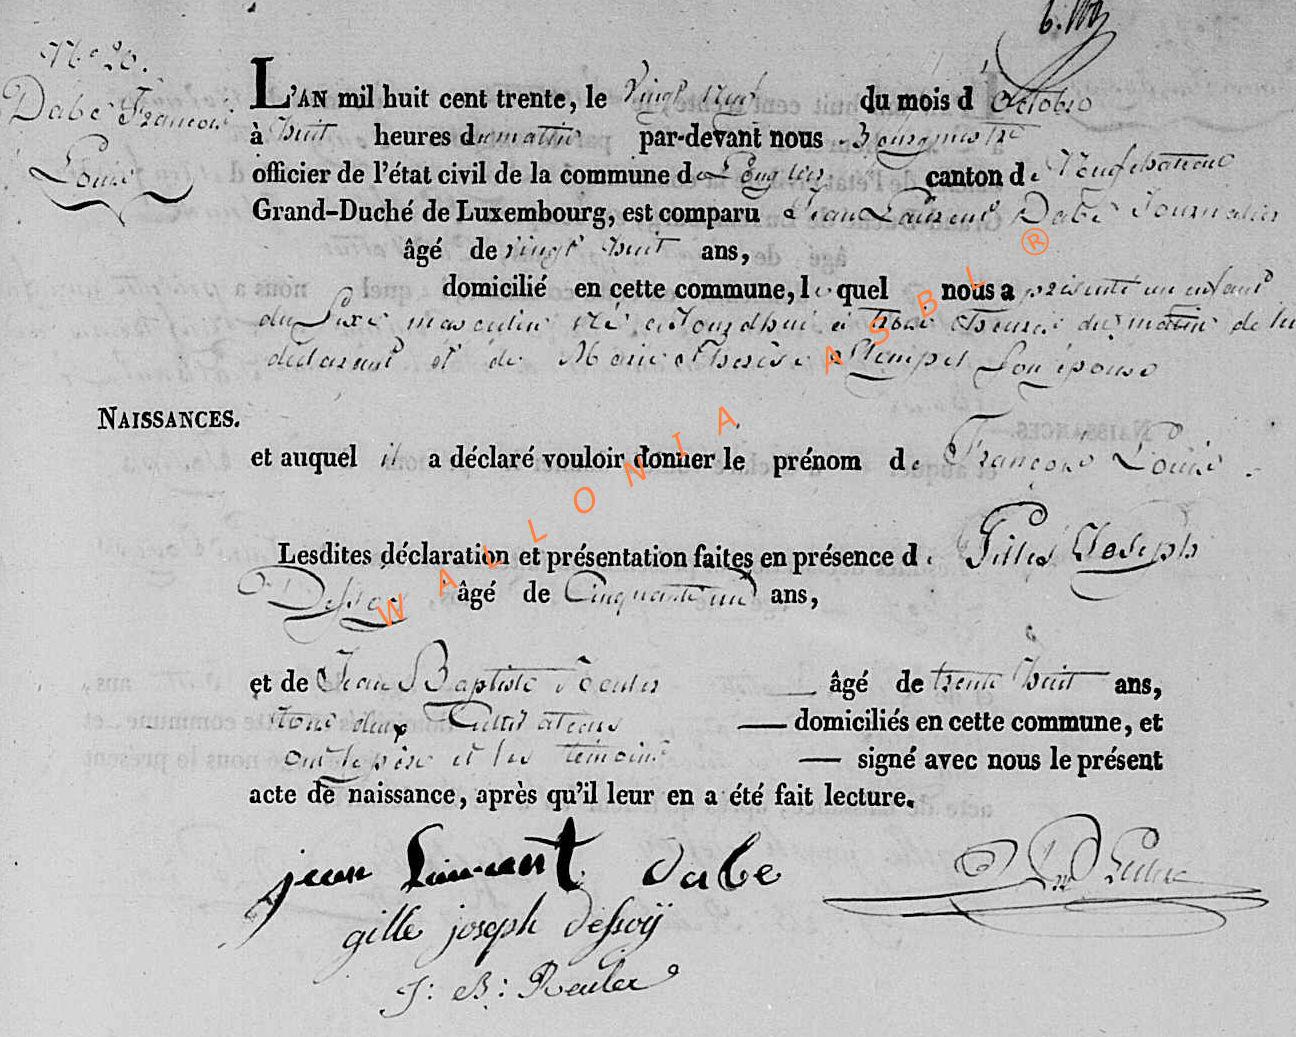 N° 20.
Dabe François
Louis
L'AN mil huit cent trente, le vingt neuf du mois d'octobre
à huit heures du matin par-devant nous Bourgmestre
officier de l'état civil de la commune de Longlier canton de Neufchateau
Grand-Duché de Luxembourg, est comparu Jean Laurent Dabe Journalier
âgé de vingt huit ans,
domicilié en cette commune, le quel nous a présenté un enfant
du Sexe masculin né aujourdhui à trois heures du matin de lui
déclarant et de Marie Therèse Son épouse
NAISSANCES.
et auquel il a déclaré vouloir donner le prénom de François Louis.
Lesdites déclaration et présentation faites en présence de Gilles Joseph
Dessoy âgé de Cinquante un ans,
et de Jean Baptiste Reuler âgé de trente huit ans,
tous deux Cultivateurs domiciliés en cette commune, et
ont le père et les témoins signé avec nous le présent
acte de naissance, après qu'il leur en a été fait lecture.
jean Laurent dabe
gille joseph dessoÿ
J: B: Reuler
WALLONIA ASBL ®